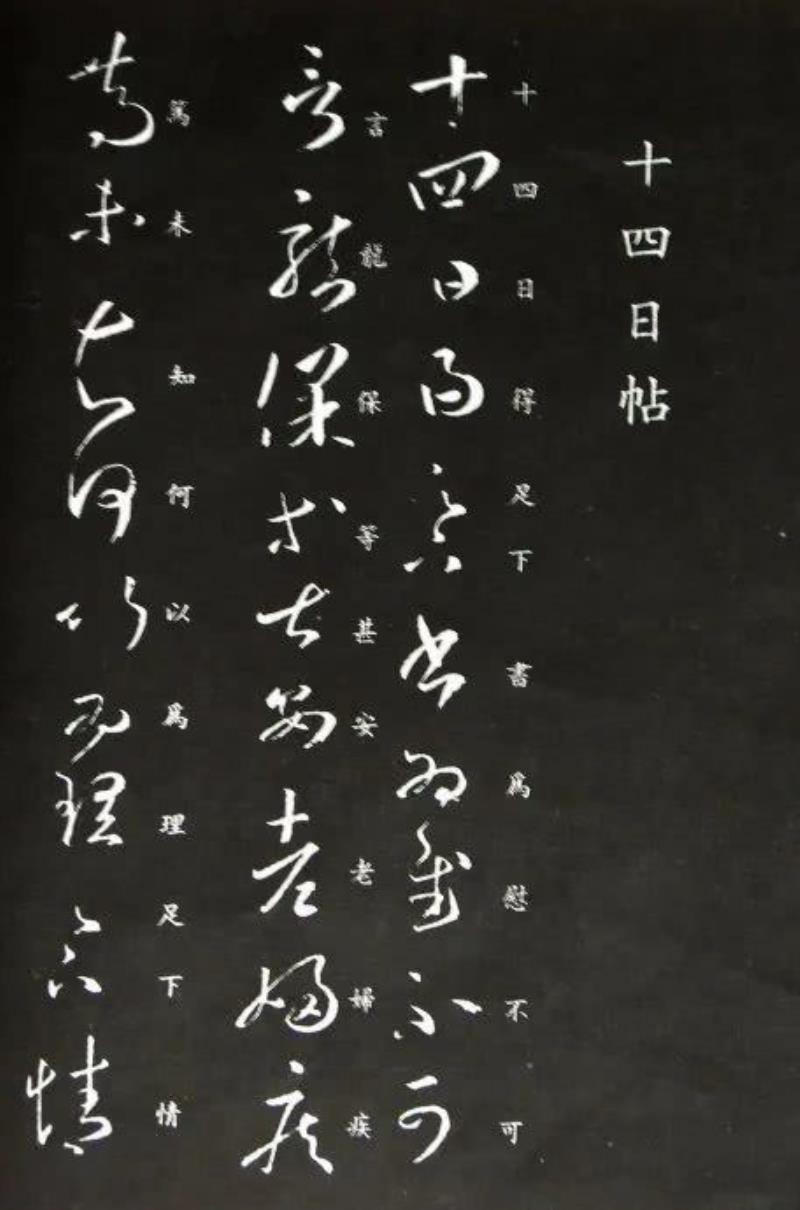 十四日帖
十四日得足下書爲慰不可
言龍保等甚安老婦疾
篤未知何以爲理足下情